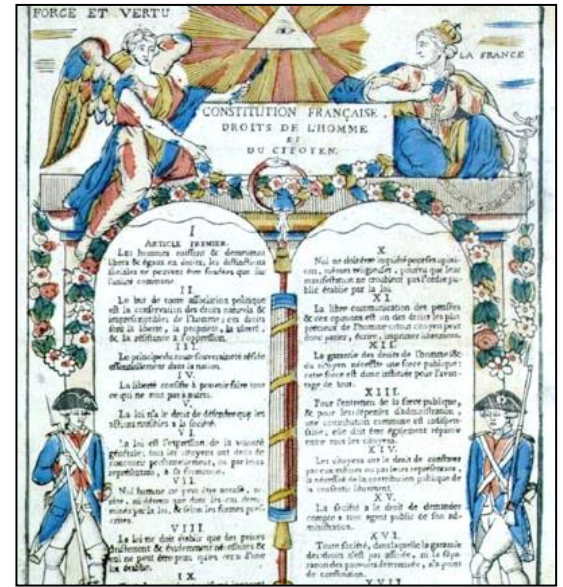 FORCE ET VERTU
LA FRANCE
CONSTITUTION FRANÇAISE.
DROITS DE L'HOMME
ET
DU CITOYEN.
I
ARTICLE PREMIER.
Les hommes naissent & demeurent
libres & égaux en droits, les distinctions
sociales ne peuvent être fondées que sur
l'utilité commune.
II.
Le but de toute association politique
est la conservation des droits naturels &
imprescriptibles de l'homme; ces droits
sont la liberté, la propriété, la sûreté,
& la résistance à l'oppression.
III.
Le principe de toute souveraineté réside
essentiellement dans la nation.
IV.
La liberté consiste à pouvoir faire tout
ce qui ne nuit pas à autrui.
V.
La loi n'a le droit de défendre que les
actions nuisibles à la société.
VI.
La loi est l'expression de la volonté
générale; tous les citoyens ont droit de
concourir personnellement, ou par leurs
représentans, à sa formation.
VII.
Nul homme ne peut être accusé,
ni détenu que dans les cas
minés par la loi, & selon les formes
VIII.
La loi ne doit établir que des peines
strictement & évidemment nécessaires &
nul ne peut être puni qu'en vertu d'une
loi établie.
IX.
X.
Nul ne doit être inquiété pour ses opini-
ons, mêmes religieuses, pourvu que leur
manifestation ne troublent pas l'ordre pu-
blic établie par la loi.
XI.
La libre communication des pensées
& des opinions est un des droits les plus
précieux de l'homme: tout citoyen peut
donc parler, écrire, imprimer librement.
XII.
La garantie des droits de l'homme &
du citoyen nécessite une force publique:
cette force est donc instituée pour l'avan-
tage de tous.
XIII.
Pour l'entretien de la force publique,
& pour les dépenses d'administration,
une contribution commune est indispen-
sable, elle doit être également répartie
entre tous les citoyens.
XIV.
Les citoyens ont le droit de constater
par eux mêmes ou par leurs représentans,
la nécessité de la contribution publique de
la consentir librement.
XV.
La société a le droit de demander
compte à tout agent public de son ad-
ministration.
XVI.
Toute société, dans laquelle la garantie
des droits n'est pas assurée, ni la sépa-
ration des pouvoirs déterminée, n'a point
de constitution.
XVII